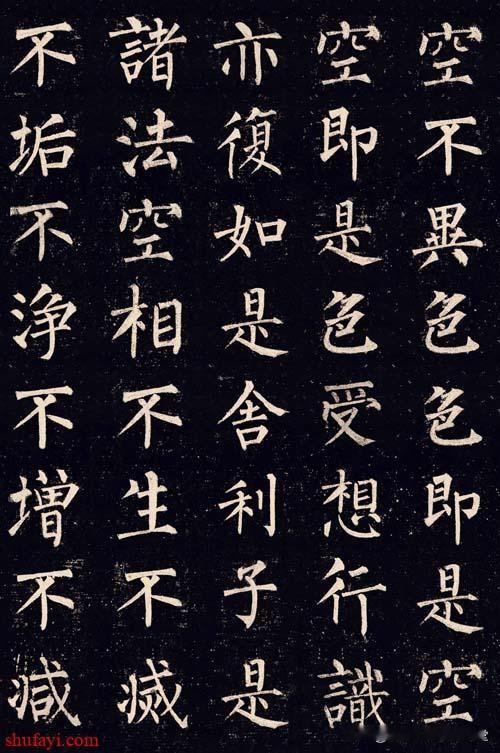 空不異色色即是空
空即是色受想行識
亦復如是舍利子是
諸法空相不生不滅
不垢不浄不增不減
shufayi.com